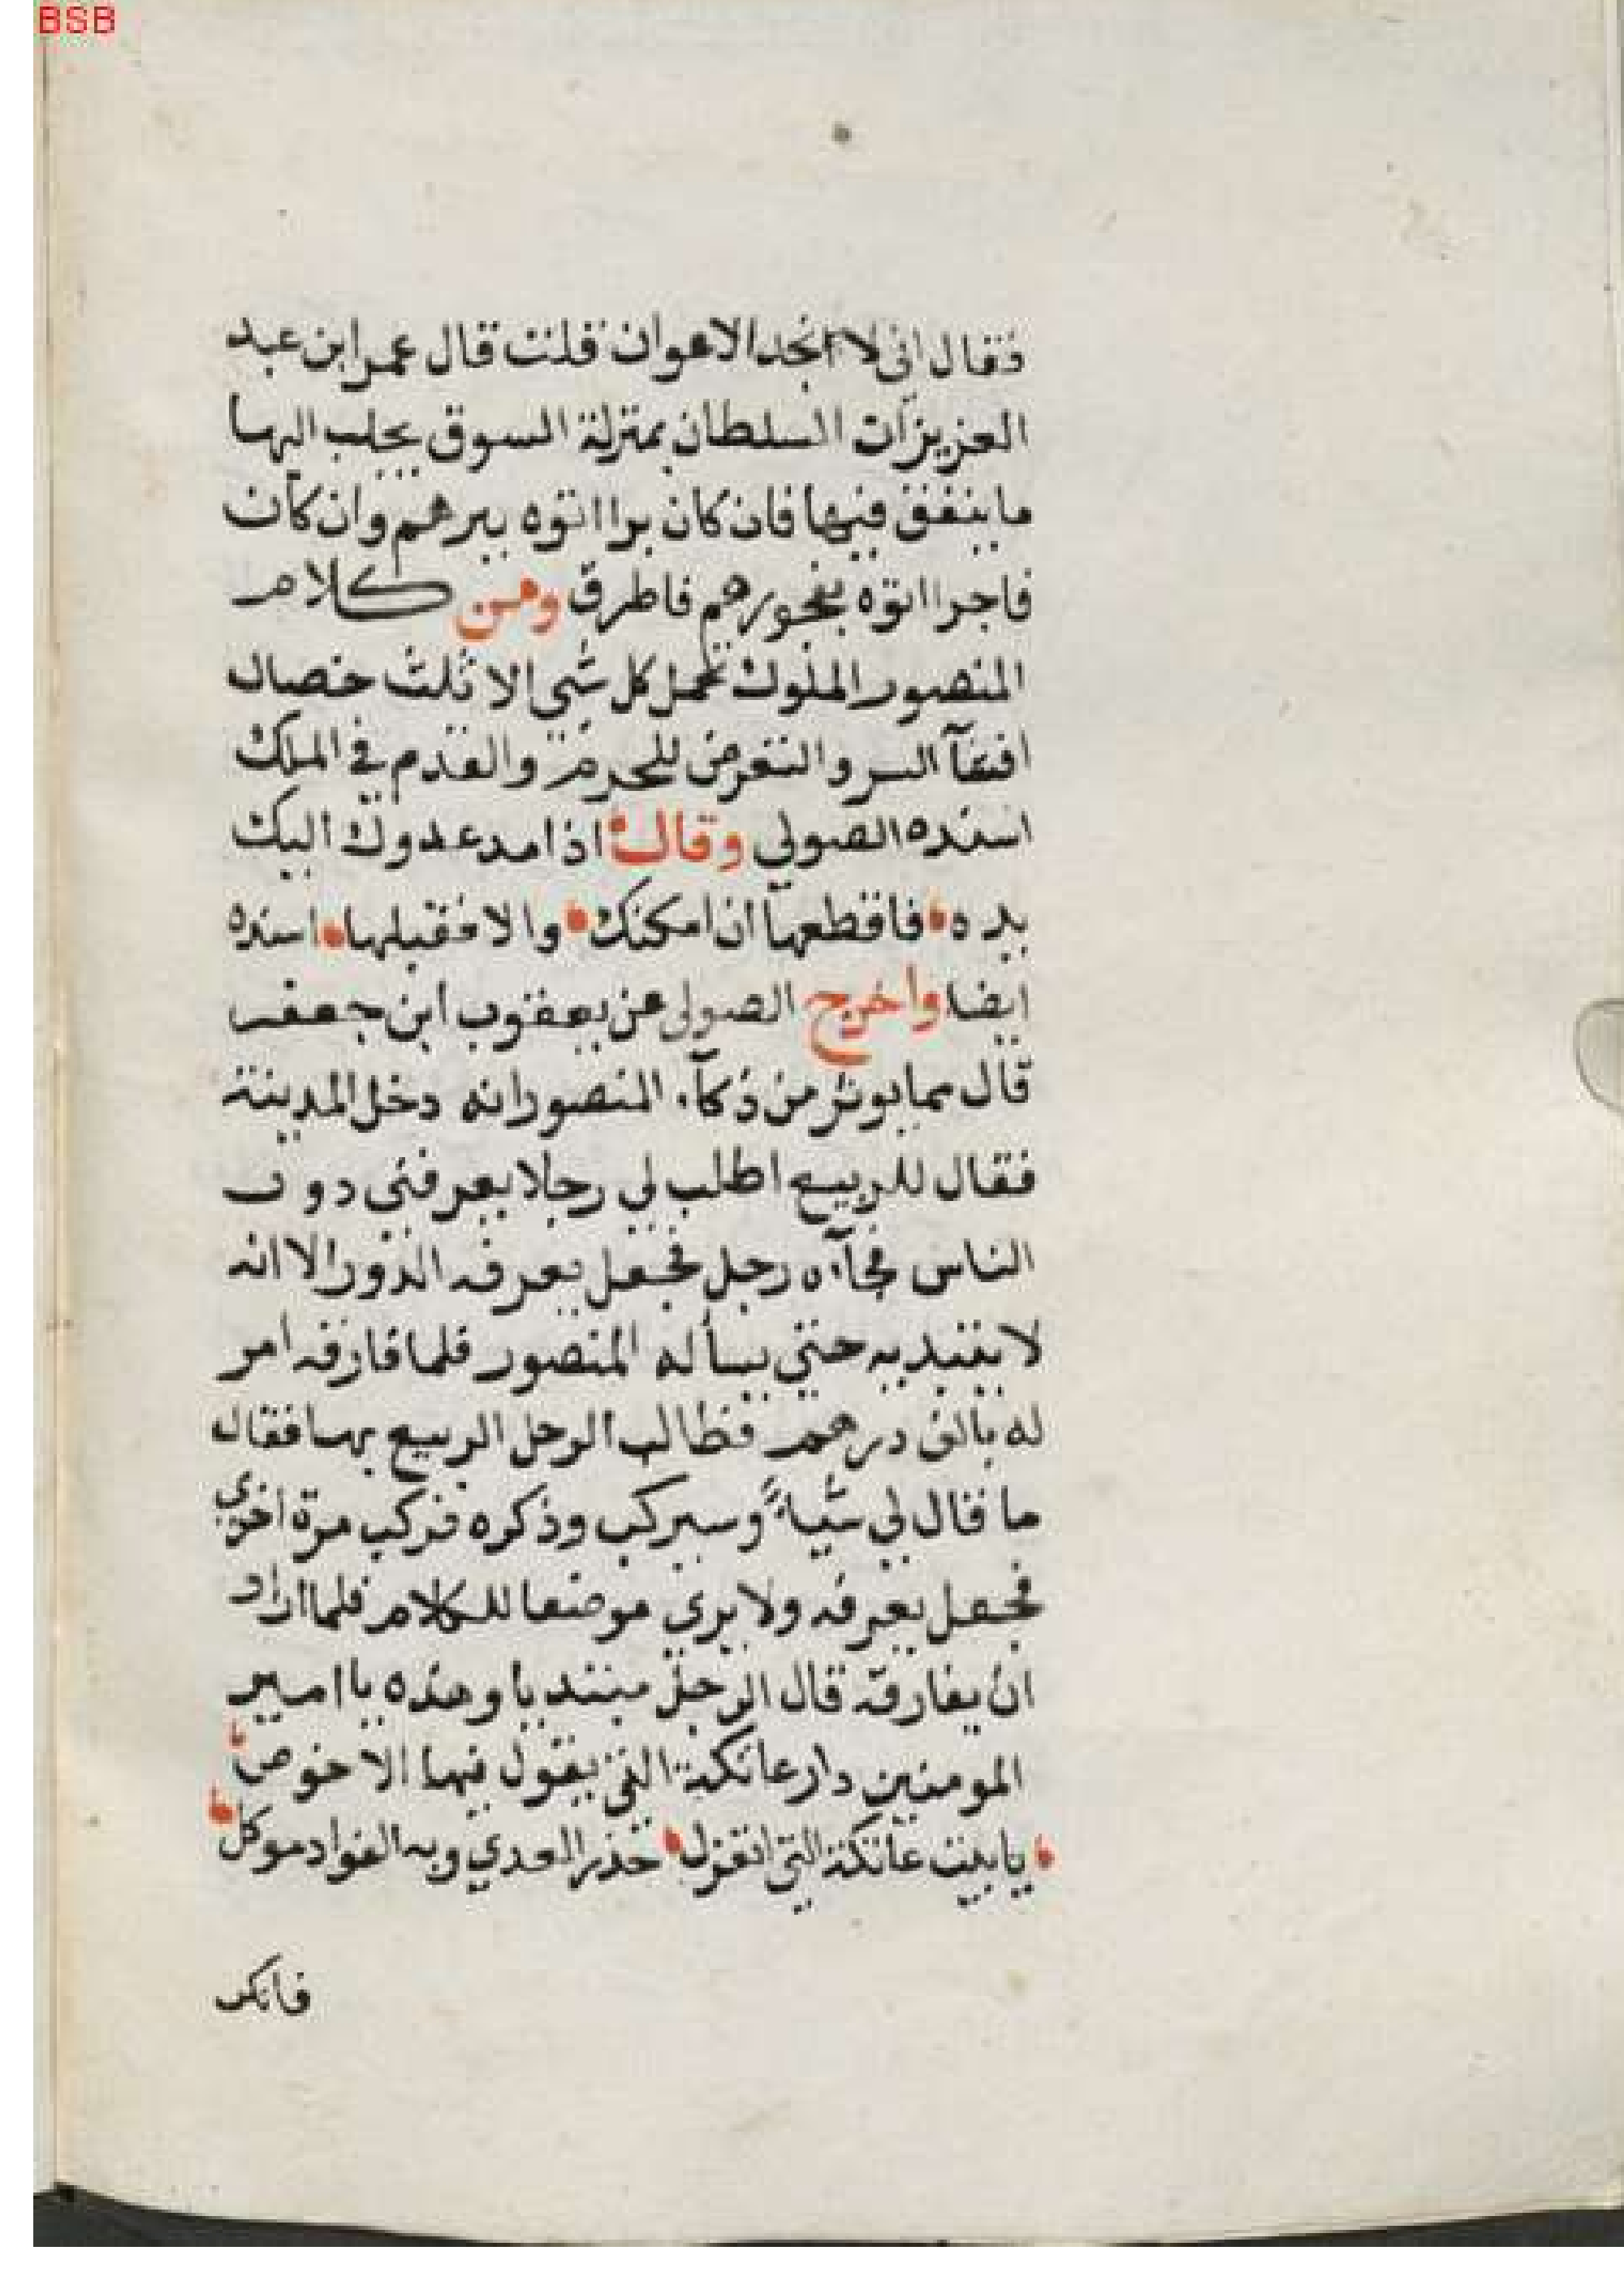 BSB
فقال اني لا اجد الاعوان قلت قال عمر ابن عبد
العزيز ان السلطان بمنزلة السوق يجلب اليها
ما ينفق فيها فان كان برا اتوه ببرهم وان كان
فاجرا اتوه بفجورهم فاطرق ومن كلام
المنصور الملوك تحمل كل شي الا ثلث خصال
افشآ السر والتعرض للحرمة والقدم في الملك
اسنده الصولي وقال اذا مد عدوك اليك
يده فاقطعها ان امكنك والا فقبلها اسنده
ايضا واخرج الصولي عن يعقوب ابن جعفر
قال مما يوثر من ذكآء المنصور انه دخل المدينة
فقال للربيع اطلب لي رجلا يعرفني دون
الناس فجآءه رجل فجعل يعرفه الدور الا انه
لا يبتديه حتي يسأله المنصور فلما فارقه امر
له بالف درهم فطالب الرجل الربيع بها فقال
ما قال لي شيأً وسيركب وذكره فركب مرة اخري
فجعل يعرفه ولا يري موضعا للكلام فلما اراد
ان يفارقه قال الرجل مبتديا وهذه يا امير
المومنين دار عاتكة التي يقول فيها الاخوص
يا بيت عاتكة التي اتعزل حذر العدي وبه الفواد موكل
فانكر